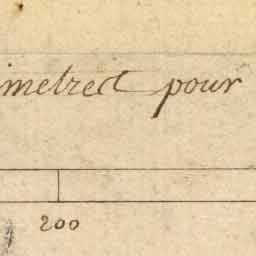 imetres pour
200